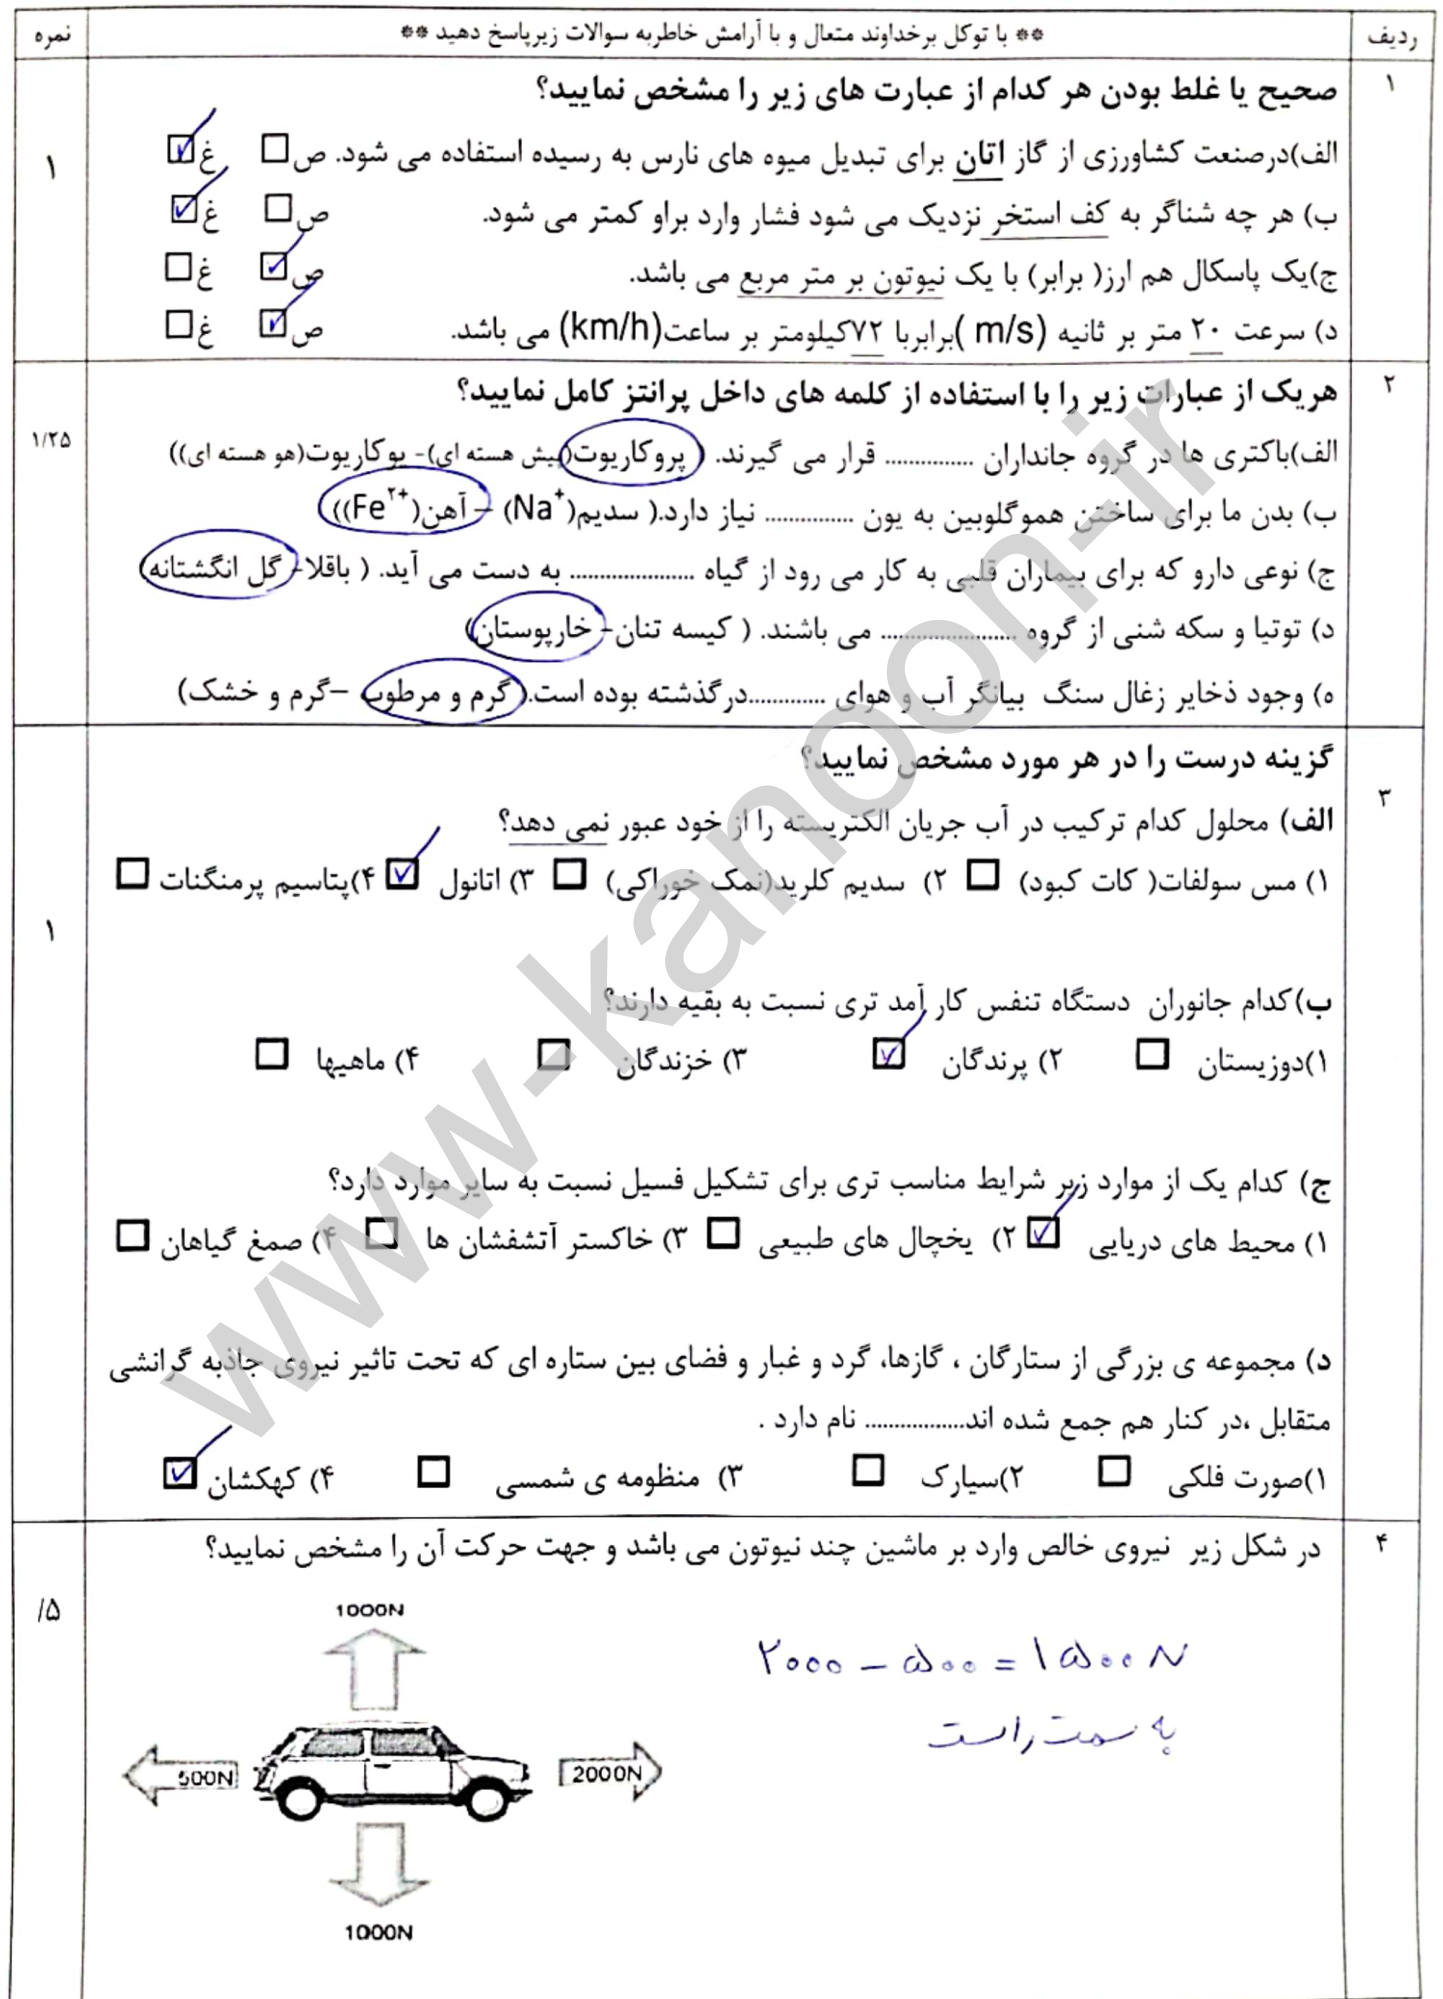 ردیف ** با توکل برخداوند متعال و با آرامش خاطربه سوالات زیرپاسخ دهید ** نمره
۱ صحیح یا غلط بودن هر کدام از عبارت های زیر را مشخص نمایید؟
الف)درصنعت کشاورزی از گاز اتان برای تبدیل میوه های نارس به رسیده استفاده می شود. ص□ غ☑ ۱
ب) هر چه شناگر به کف استخر نزدیک می شود فشار وارد براو کمتر می شود. ص□ غ☑
ج)یک پاسکال هم ارز( برابر) با یک نیوتون بر متر مربع می باشد. ص☑ غ□
د) سرعت ۲۰ متر بر ثانیه (m/s )برابربا ۷۲کیلومتر بر ساعت(km/h) می باشد. ص☑ غ□
۲ هریک از عبارات زیر را با استفاده از کلمه های داخل پرانتز کامل نمایید؟
۱/۲۵
الف)باکتری ها در گروه جانداران .............. قرار می گیرند. ( پروکاریوت(پیش هسته ای)- یوکاریوت(هو هسته ای))
ب) بدن ما برای ساختن هموگلوبین به یون .............. نیاز دارد.( سدیم(Na⁺) – آهن(Fe²⁺))
ج) نوعی دارو که برای بیماران قلبی به کار می رود از گیاه .................... به دست می آید. ( باقلا- گل انگشتانه)
د) توتیا و سکه شنی از گروه ...................... می باشند. ( کیسه تنان- خارپوستان)
ه) وجود ذخایر زغال سنگ بیانگر آب و هوای .............درگذشته بوده است.( گرم و مرطوب –گرم و خشک)
۳ گزینه درست را در هر مورد مشخص نمایید؟
الف) محلول کدام ترکیب در آب جریان الکتریسته را از خود عبور نمی دهد؟
۱) مس سولفات( کات کبود) □ ۲) سدیم کلرید(نمک خوراکی) □ ۳) اتانول ☑ ۴)پتاسیم پرمنگنات □
۱
ب)کدام جانوران دستگاه تنفس کار آمد تری نسبت به بقیه دارند؟
۱)دوزیستان □ ۲) پرندگان ☑ ۳) خزندگان □ ۴) ماهیها □
ج) کدام یک از موارد زیر شرایط مناسب تری برای تشکیل فسیل نسبت به سایر موارد دارد؟
۱) محیط های دریایی ☑ ۲) یخچال های طبیعی □ ۳) خاکستر آتشفشان ها □ ۴) صمغ گیاهان □
د) مجموعه ی بزرگی از ستارگان ، گازها، گرد و غبار و فضای بین ستاره ای که تحت تاثیر نیروی جاذبه گرانشی
متقابل ،در کنار هم جمع شده اند................. نام دارد .
۱)صورت فلکی □ ۲)سیارک □ ۳) منظومه ی شمسی □ ۴) کهکشان ☑
۴ در شکل زیر نیروی خالص وارد بر ماشین چند نیوتون می باشد و جهت حرکت آن را مشخص نمایید؟
/۵
1000N
۲۰۰۰ – ۵۰۰ = ۱۵۰۰ N
به سمت راست
500N
2000N
1000N
www-kanoon-ir